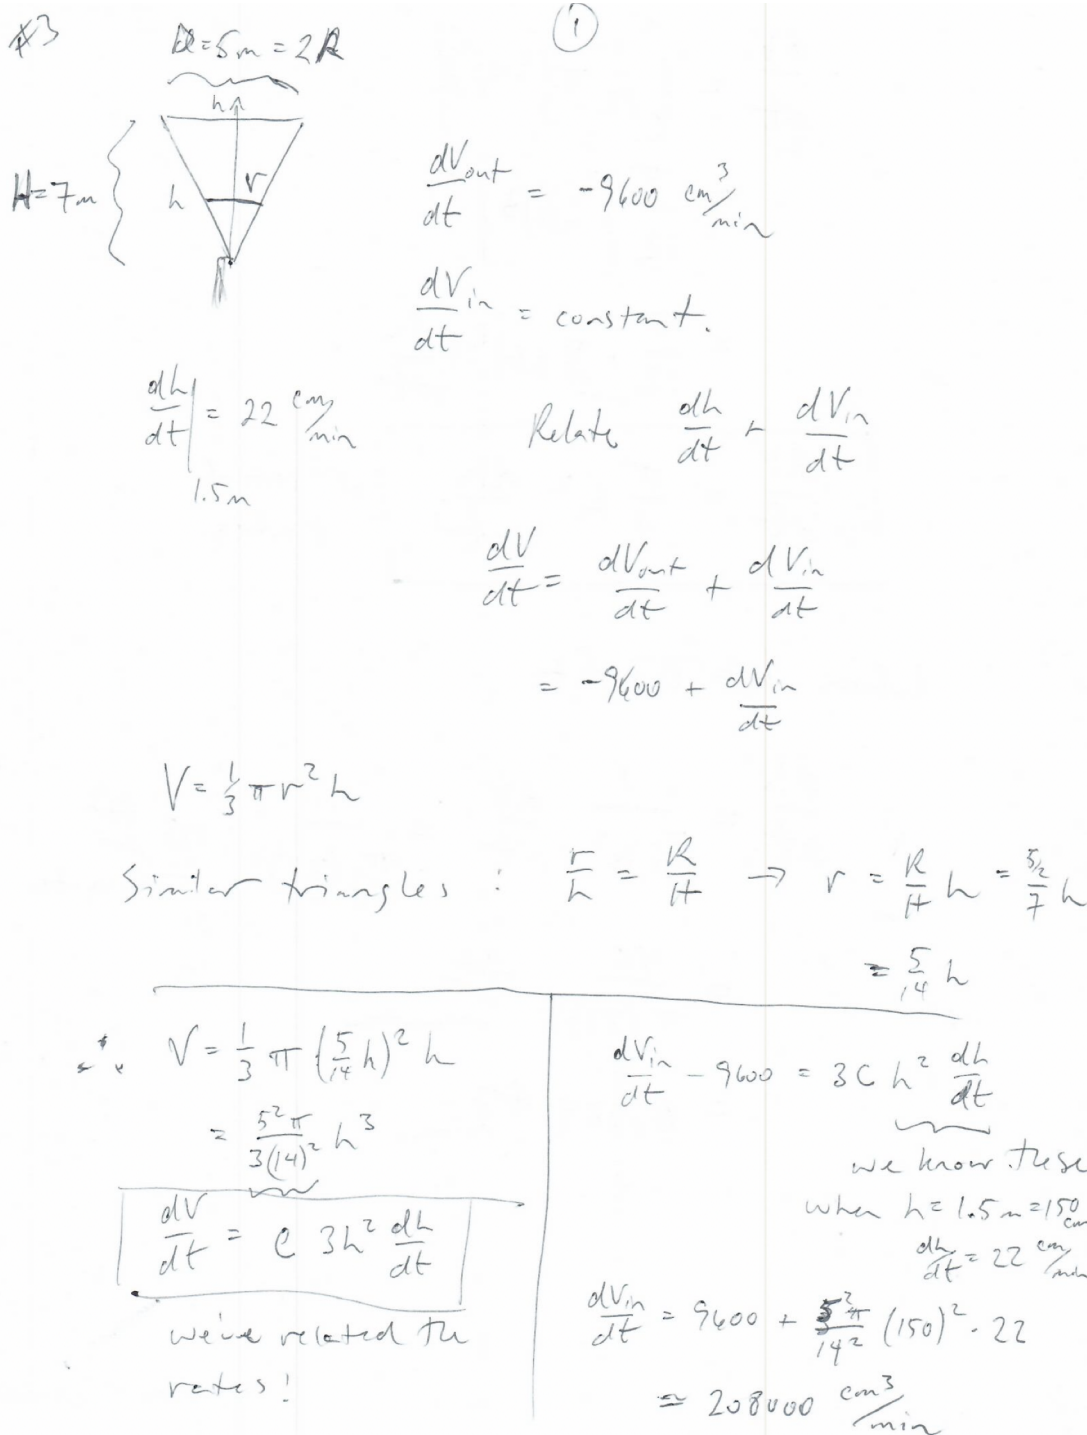 #3
①
D=5m=2R
h
H=7m
h
r
dV_out/dt = -9600 cm³/min
dV_in/dt = constant.
dh/dt |_1.5m = 22 cm/min
Relate dh/dt + dV_in/dt
dV/dt = dV_out/dt + dV_in/dt
= -9600 + dV_in/dt
V = 1/3 π r² h
Similar triangles : r/h = R/H → r = R/H h = 5/2/7 h
= 5/14 h
∴ V = 1/3 π (5/14 h)² h
= 5²π/3(14)² h³
dV/dt = C 3h² dh/dt
we've related the
rates!
dV_in/dt - 9600 = 3C h² dh/dt
we know these
when h = 1.5m = 150 cm
dh/dt = 22 cm/min
dV_in/dt = 9600 + 5²π/14² (150)² · 22
= 208000 cm³/min